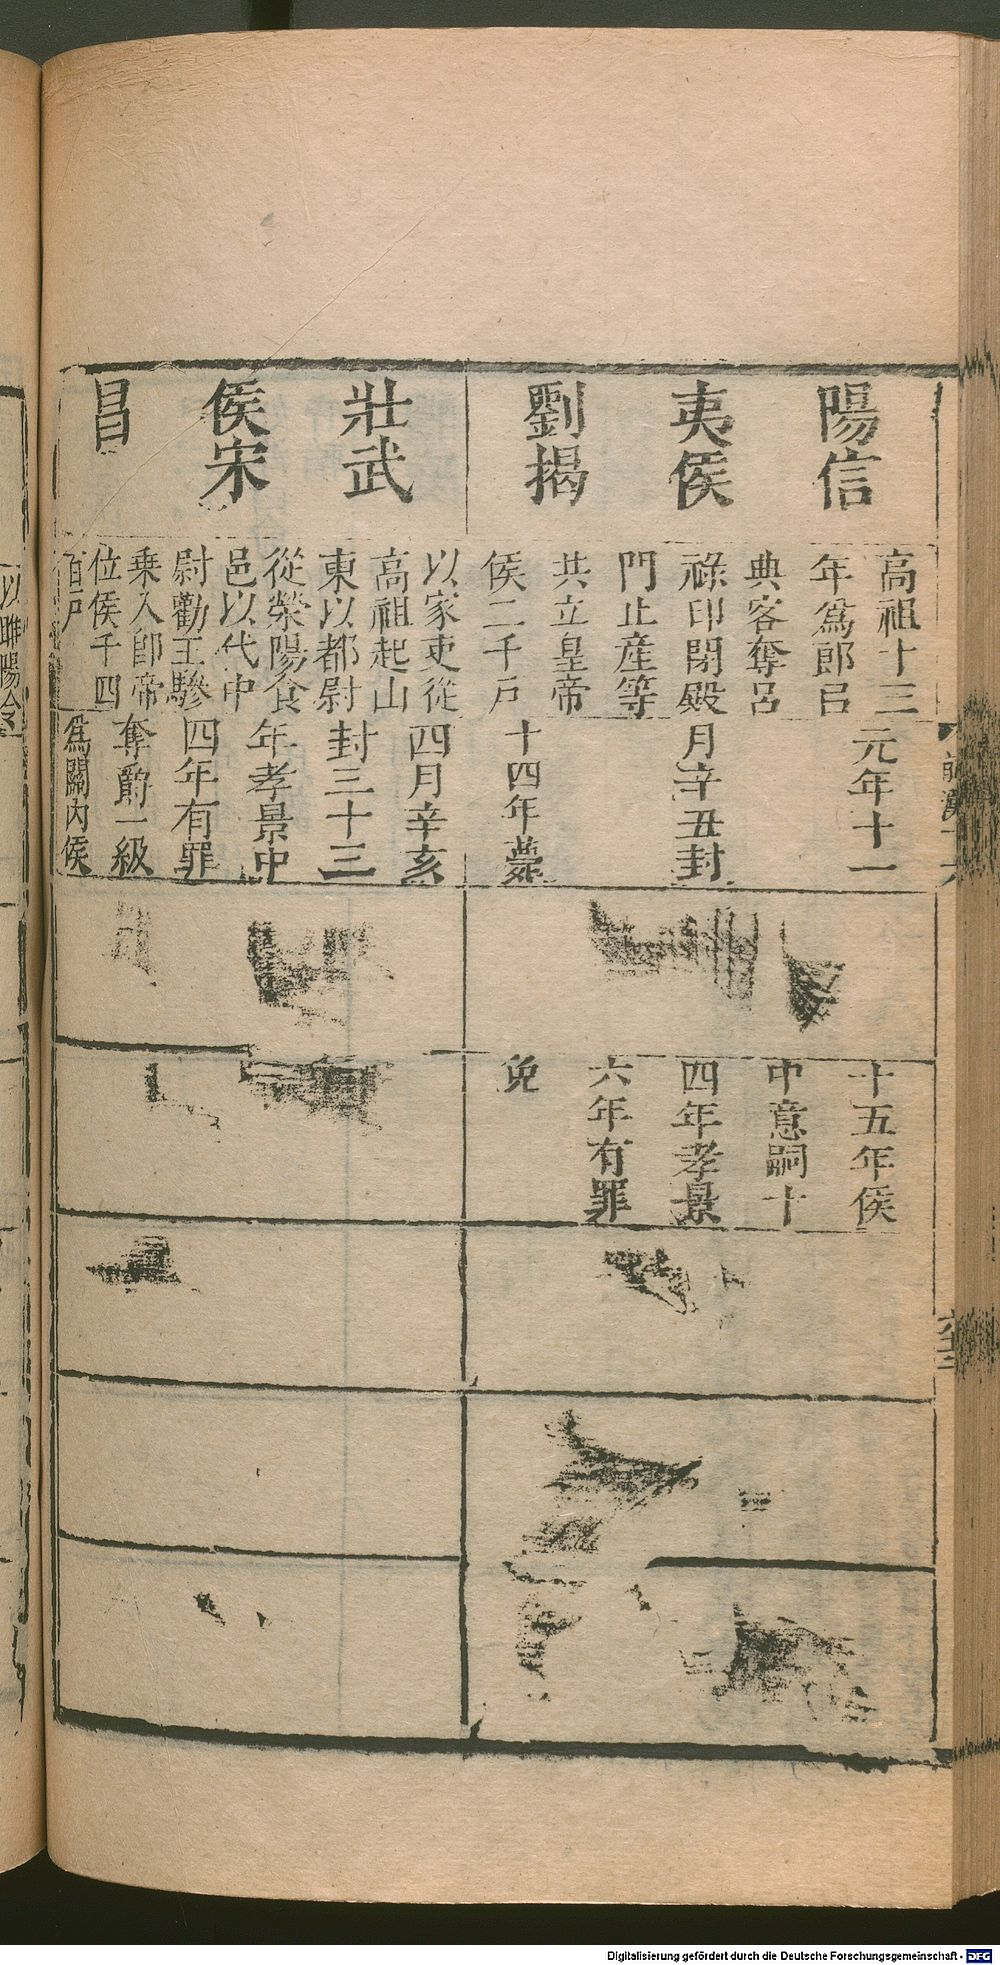 陽信
夷侯
劉揭
高祖十三
年爲郎吕
典客奪吕
祿印閉殿
門止産等
共立皇帝
侯二千戸
元年十一
月辛丑封
十四年薨
十五年侯
中意嗣十
四年孝景
六年有罪
免
壯武
侯宋
昌
以家吏從
高祖起山
東以都尉
從滎陽食
邑以代中
尉勸王驂
乗入即帝
位侯千四
百戸
四月辛亥
封三十三
年孝景中
四年有罪
奪爵一級
爲關内侯
以睢陽令
Digitalisierung gefördert durch die Deutsche Forschungsgemeinschaft - DFG